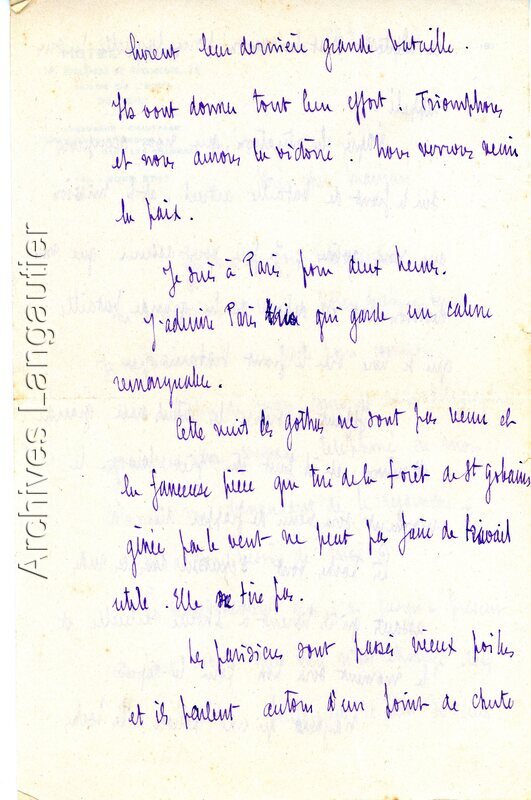 livrent leur dernière grande bataille.
Ils vont donner tout leur effort. Triomphons
et nous aurons la victoire. Nous verrons venir
la paix.
Je suis à Paris pour deux heures.
J'admire Paris qui garde un calme
remarquable.
Cette nuit les gothas ne sont pas venus et
la fameuse pièce qui tire de la forêt de St Gobain
gênée par le vent ne peut pas faire de travail
utile. Elle ne tire pas.
Les parisiens sont passés vieux poilus
et ils parlent autour d'un point de chute
Archives Langautier